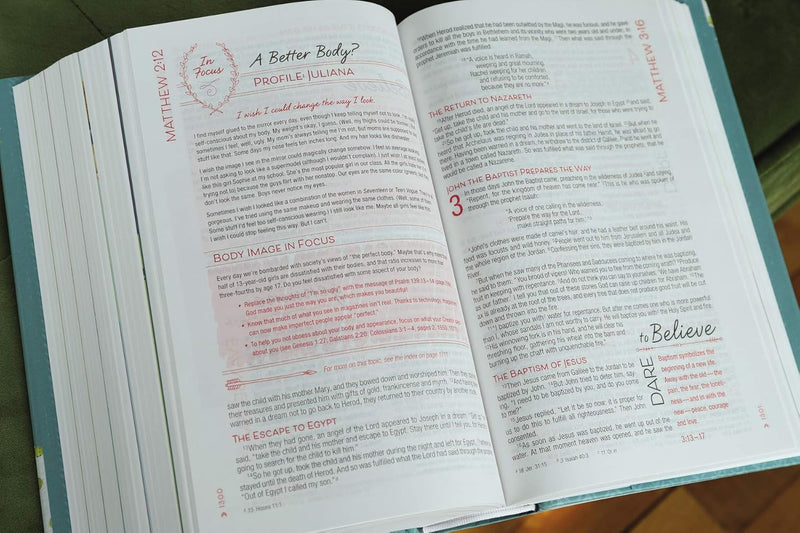 MATTHEW 2:12
In
Focus
A Better Body?
PROFILE: JULIANA
I wish I could change the way I look.
I find myself glued to the mirror every day, even though I keep telling myself not to look. I'm
self-conscious about my body. My weight's okay, I guess. (Well, my thighs could be
sometimes I feel, well, ugly. My mom's always telling me I'm not, but moms are supposed to
stuff like that. Some days my nose feels ten inches long. And my hair looks like
I wish the image I see in the mirror could magically change somehow. I feel so average
I'm not asking to look like a supermodel (although I wouldn't complain). I just wish I at least
like this girl Sophie at my school. She's the most popular girl in our class. All the guys
trying not to) because the guys flirt with her nonstop. Our eyes are the same color
don't look the same. Boys never notice my eyes.
Sometimes I wish I looked like a combination of the women in Seventeen or Teen Vogue.
gorgeous. I've tried using the same makeup and wearing the same clothes. (Well, some of
Some stuff I'd feel too self-conscious wearing.) I still look like me. Maybe all girls feel like
I wish I could stop feeling this way. But I can't.
BODY IMAGE IN FOCUS
Every day we're bombarded with society's views of "the perfect body." Maybe that's why more
half of 13-year-old girls are dissatisfied with their bodies, and that ratio increases to more than
three-fourths by age 17. Do you feel dissatisfied with some aspect of your body?
• Replace the thoughts of "I'm so ugly" with the message of Psalm 139:13–14
God made you, just the way you are, which makes you beautiful!
• Know that much of what you see in magazines isn't real. Thanks to technology, imperfect
can now make imperfect people appear "perfect."
• To help you not obsess about your body and appearance, focus on what your Creator says
about you (see Genesis 1:27; Galatians 2:26; Colossians 3:1–4,
For more on this topic, see the index on page
saw the child with his mother Mary, and they bowed down and worshiped him. Then they opened
their treasures and presented him with gifts of gold, frankincense and myrrh. ¹²And having been
warned in a dream not to go back to Herod, they returned to their country by another route.
THE ESCAPE TO EGYPT
¹³When they had gone, an angel of the Lord appeared to Joseph in a dream. "Get up,"
said, "take the child and his mother and escape to Egypt. Stay there until I tell you, for Herod is
going to search for the child to kill him."
¹⁴So he got up, took the child and his mother during the night and left for Egypt, ¹⁵where he
stayed until the death of Herod. And so was fulfilled what the Lord had said through the prophet:
"Out of Egypt I called my son."
15: Hosea 11:1
1300
MATTHEW 3:16
¹⁶When Herod realized that he had been outwitted by the Magi, he was furious, and he gave
orders to kill all the boys in Bethlehem and its vicinity who were two years old and under, in
accordance with the time he had learned from the Magi. ¹⁷Then what was said through the
prophet Jeremiah was fulfilled:
¹⁸"A voice is heard in Ramah,
weeping and great mourning,
Rachel weeping for her children
and refusing to be comforted,
because they are no more."
THE RETURN TO NAZARETH
¹⁹After Herod died, an angel of the Lord appeared in a dream to Joseph in Egypt ²⁰and said,
"Get up, take the child and his mother and go to the land of Israel, for those who were trying to
take the child's life are dead."
²¹So he got up, took the child and his mother and went to the land of Israel. ²²But when he
heard that Archelaus was reigning in Judea in place of his father Herod, he was afraid to go
there. Having been warned in a dream, he withdrew to the district of Galilee, ²³and he went and
lived in a town called Nazareth. So was fulfilled what was said through the prophets, that he
would be called a Nazarene.
JOHN THE BAPTIST PREPARES THE WAY
3 In those days John the Baptist came, preaching in the wilderness of Judea ²and saying,
"Repent, for the kingdom of heaven has come near." ³This is he who was spoken of
through the prophet Isaiah:
"A voice of one calling in the wilderness,
'Prepare the way for the Lord,
make straight paths for him.'"
⁴John's clothes were made of camel's hair, and he had a leather belt around his waist. His
food was locusts and wild honey. ⁵People went out to him from Jerusalem and all Judea and
the whole region of the Jordan. ⁶Confessing their sins, they were baptized by him in the Jordan
River.
⁷But when he saw many of the Pharisees and Sadducees coming to where he was baptizing,
he said to them: "You brood of vipers! Who warned you to flee from the coming wrath? ⁸Produce
fruit in keeping with repentance. ⁹And do not think you can say to yourselves, 'We have Abraham
as our father.' I tell you that out of these stones God can raise up children for Abraham. ¹⁰The
ax is already at the root of the trees, and every tree that does not produce good fruit will be cut
down and thrown into the fire.
¹¹"I baptize you with water for repentance. But after me comes one who is more powerful
than I, whose sandals I am not worthy to carry. He will baptize you with the Holy Spirit and fire.
¹²His winnowing fork is in his hand, and he will clear his
threshing floor, gathering his wheat into the barn and
burning up the chaff with unquenchable fire."
THE BAPTISM OF JESUS
¹³Then Jesus came from Galilee to the Jordan to be
baptized by John. ¹⁴But John tried to deter him, saying
"I need to be baptized by you, and do you come
to me?"
¹⁵Jesus replied, "Let it be so now; it is proper for
us to do this to fulfill all righteousness." Then John
consented.
¹⁶As soon as Jesus was baptized, he went up out of the
water. At that moment heaven was opened, and he saw the
DARE
to Believe
Baptism symbolizes
the beginning of a
of a new life.
Away with the old—the
pain, the fear, the loneli-
ness—and in with the
new—peace, courage
and love.
3:13–17
18 Jer. 31:15
3 Isaiah 40:3
1301